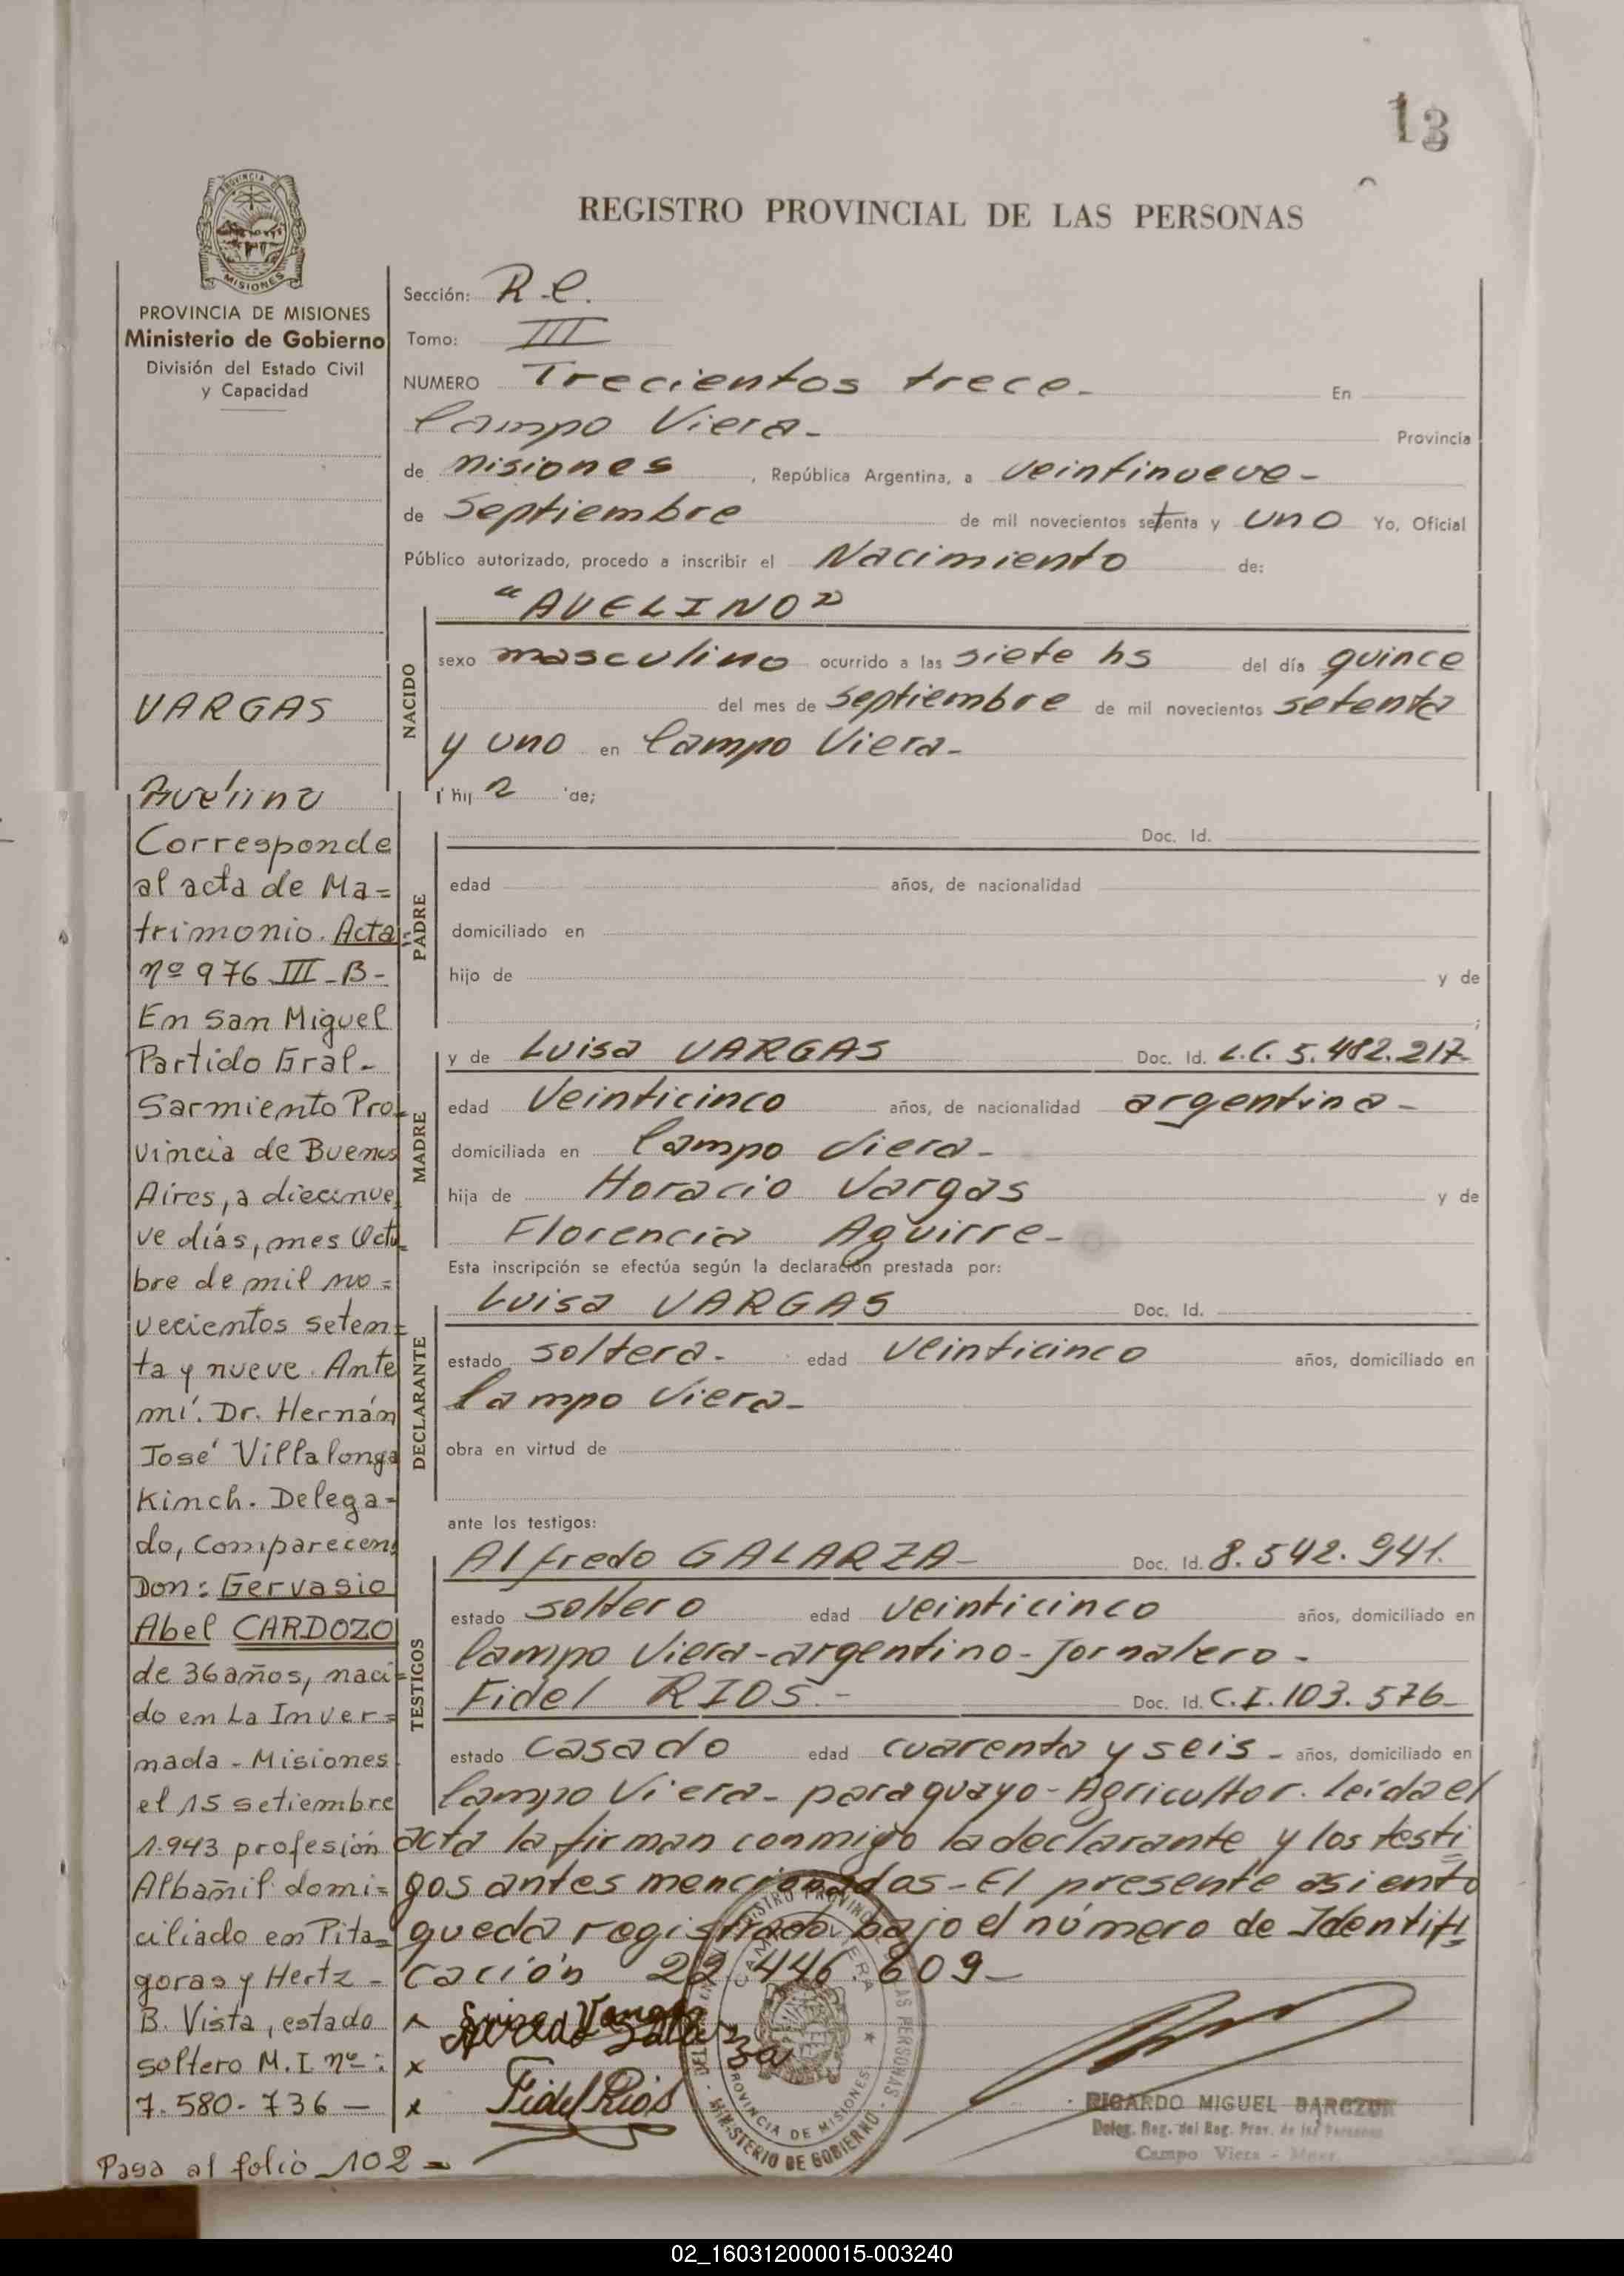 13
REGISTRO PROVINCIAL DE LAS PERSONAS
PROVINCIA DE MISIONES
Ministerio de Gobierno
División del Estado Civil
y Capacidad
VARGAS
Avelino
Corresponde
al acta de Ma=
trimonio. Acta
nº 976 III-B-
En San Miguel
Partido Gral-
Sarmiento Pro-
vincia de Buenos
Aires, a diecinue
ve días, mes Octu-
bre de mil no=
vecientos seten=
ta y nueve. Ante
mí: Dr. Hernán
José Villalonga
Kinch. Delega=
do, Comparecen
Don: Gervasio
Abel CARDOZO
de 36 años, naci=
do en La Inver=
nada - Misiones
el 15 setiembre
1.943 profesión
Albañil domi=
ciliado en Pita=
goras y Hertz -
B. Vista, estado
soltero M.I nº:
7.580-736 —
Pasa al folio 102 =
Sección: R.C.
Tomo: III
NUMERO Trecientos trece - En
Campo Viera - Provincia
de misiones, República Argentina, a veintinueve -
de septiembre de mil novecientos setenta y uno Yo, Oficial
Público autorizado, procedo a inscribir el Nacimiento de:
"AVELINO"
NACIDO
sexo masculino ocurrido a las siete hs del día quince
del mes de septiembre de mil novecientos setenta
y uno en Campo Viera -
hij de;
PADRE
Doc. Id.
edad años, de nacionalidad
domiciliado en
hijo de y de
;
MADRE
y de Luisa VARGAS Doc. Id. L.C. 5.482.217-
edad Veinticinco años, de nacionalidad argentina -
domiciliada en Campo Viera -
hija de Horacio Vargas y de
Florencia Aguirre -
Esta inscripción se efectúa según la declaración prestada por:
DECLARANTE
Luisa VARGAS Doc. Id.
estado soltera - edad veinticinco años, domiciliado en
Campo Viera -
obra en virtud de
ante los testigos:
TESTIGOS
Alfredo GALARZA - Doc. Id. 8.542.941.
estado soltero edad veinticinco años, domiciliado en
Campo Viera - argentino - Jornalero -
Fidel RIOS.- Doc. Id. C.I. 103.576-
estado casado edad cuarenta y seis - años, domiciliado en
Campo Viera - paraguayo - Agricultor. leída el
acta la firman conmigo la declarante y los testi
gos antes mencionados - El presente asiento
queda registrado bajo el número de Identifi
cación 22.446.609 -
x
x Fidel Rios
RICARDO MIGUEL BARCZUK
Deleg. Reg. del Reg. Prov. de las Personas
Campo Viera -
PROVINCIA DE MISIONES
MINISTERIO DE GOBIERNO
02_160312000015-003240